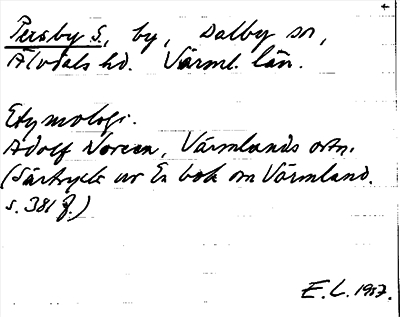 Persby S, by, Dalby sn,
Älvdals hd. Värml. län.
Etymologi.
Adolf Noreen, Värmlands ortn.
(Särtryck ur En bok om Värmland.
s. 381 f.)
E. L. 1957.